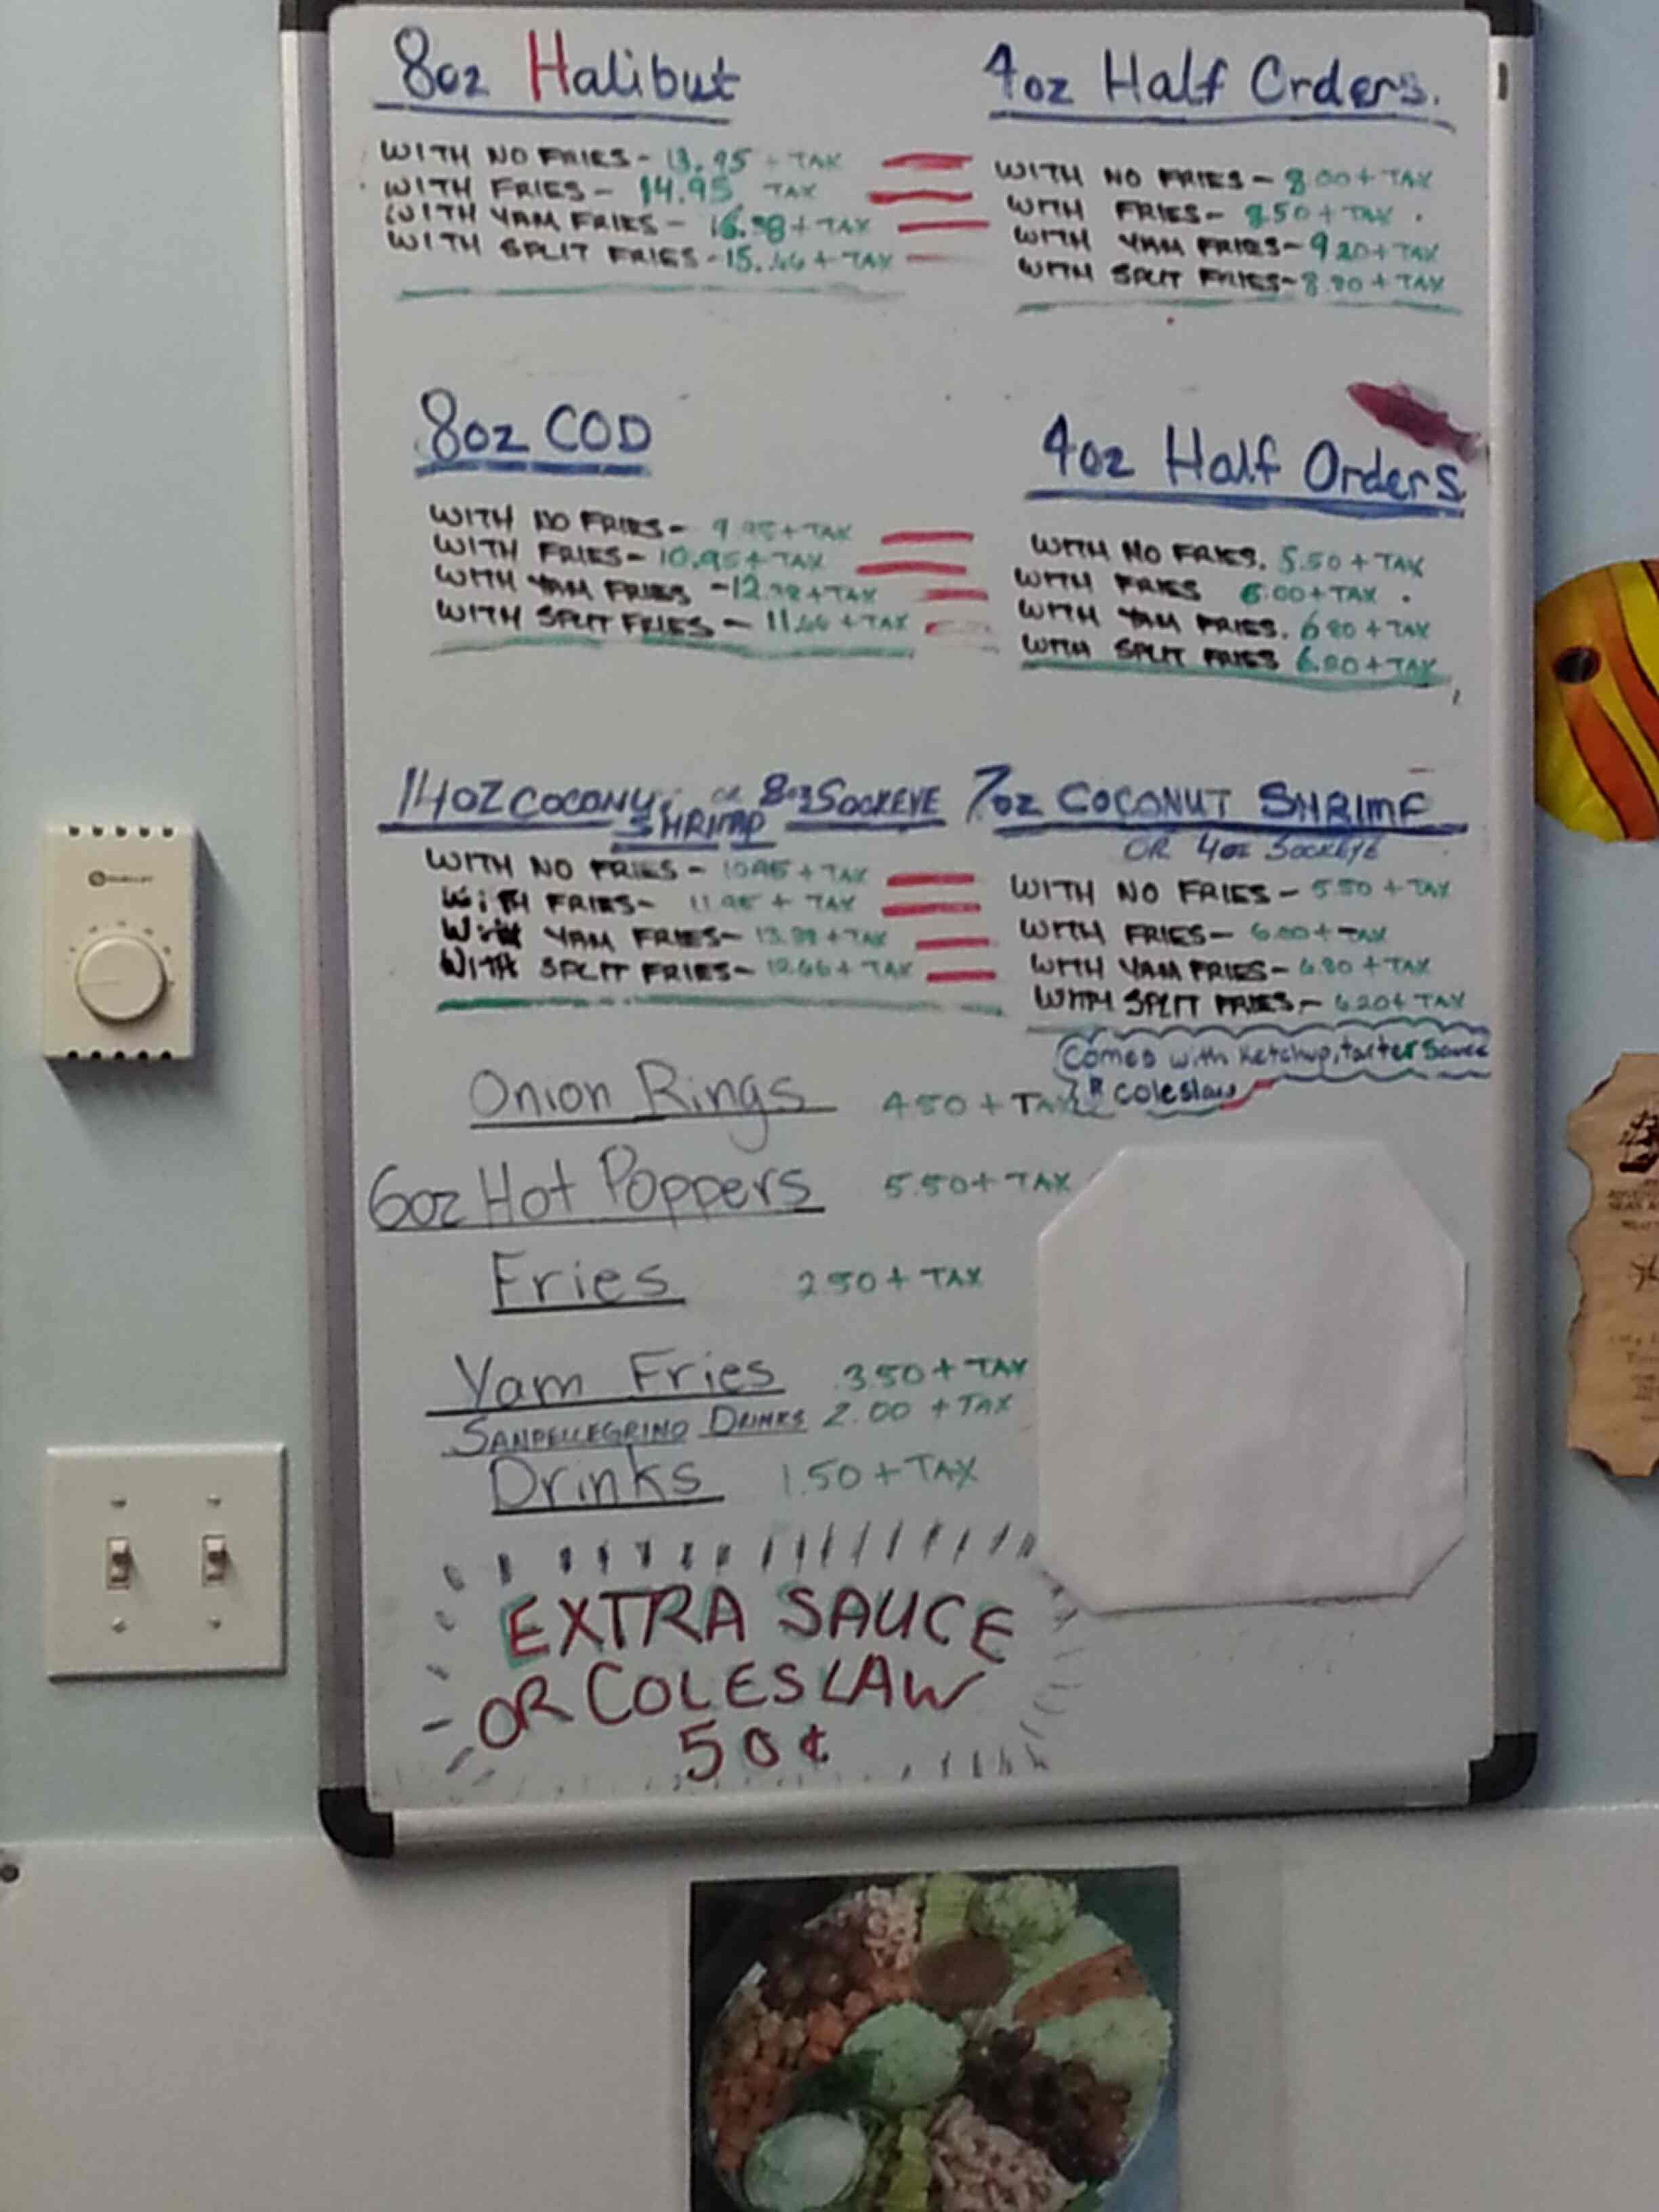 8oz Halibut
WITH NO FRIES - 13.95 + TAX
WITH FRIES - 14.95 TAX
WITH YAM FRIES - 16.38 + TAX
WITH SPLIT FRIES - 15.66 + TAX
4oz Half Orders.
WITH NO FRIES - 8.00 + TAX
WITH FRIES - 8.50 + TAX
WITH YAM FRIES - 9.20 + TAX
WITH SPLIT FRIES - 8.80 + TAX
8oz COD
WITH NO FRIES - 9.95 + TAX
WITH FRIES - 10.95 + TAX
WITH YAM FRIES - 12.38 + TAX
WITH SPLIT FRIES - 11.66 + TAX
4oz Half Orders
WITH NO FRIES. 5.50 + TAX
WITH FRIES 6.00 + TAX
WITH YAM FRIES. 6.80 + TAX
WITH SPLIT FRIES 6.20 + TAX
14OZ COCONUT OR 8oz SOCKEYE
SHRIMP
WITH NO FRIES - 10.95 + TAX
WITH FRIES - 11.95 + TAX
WITH YAM FRIES - 13.38 + TAX
WITH SPLIT FRIES - 12.66 + TAX
7oz COCONUT SHRIMP
OR 4oz SOCKEYE
WITH NO FRIES - 5.50 + TAX
WITH FRIES - 6.00 + TAX
WITH YAM FRIES - 6.80 + TAX
WITH SPLIT FRIES - 6.20 + TAX
Comes with Ketchup, tarter Sauce
& coleslaw
Onion Rings 4.50 + TAX
6oz Hot Poppers 5.50 + TAX
Fries 2.50 + TAX
Yam Fries 3.50 + TAX
SANPELLEGRINO DRINKS 2.00 + TAX
Drinks 1.50 + TAX
EXTRA SAUCE
OR COLESLAW
50¢